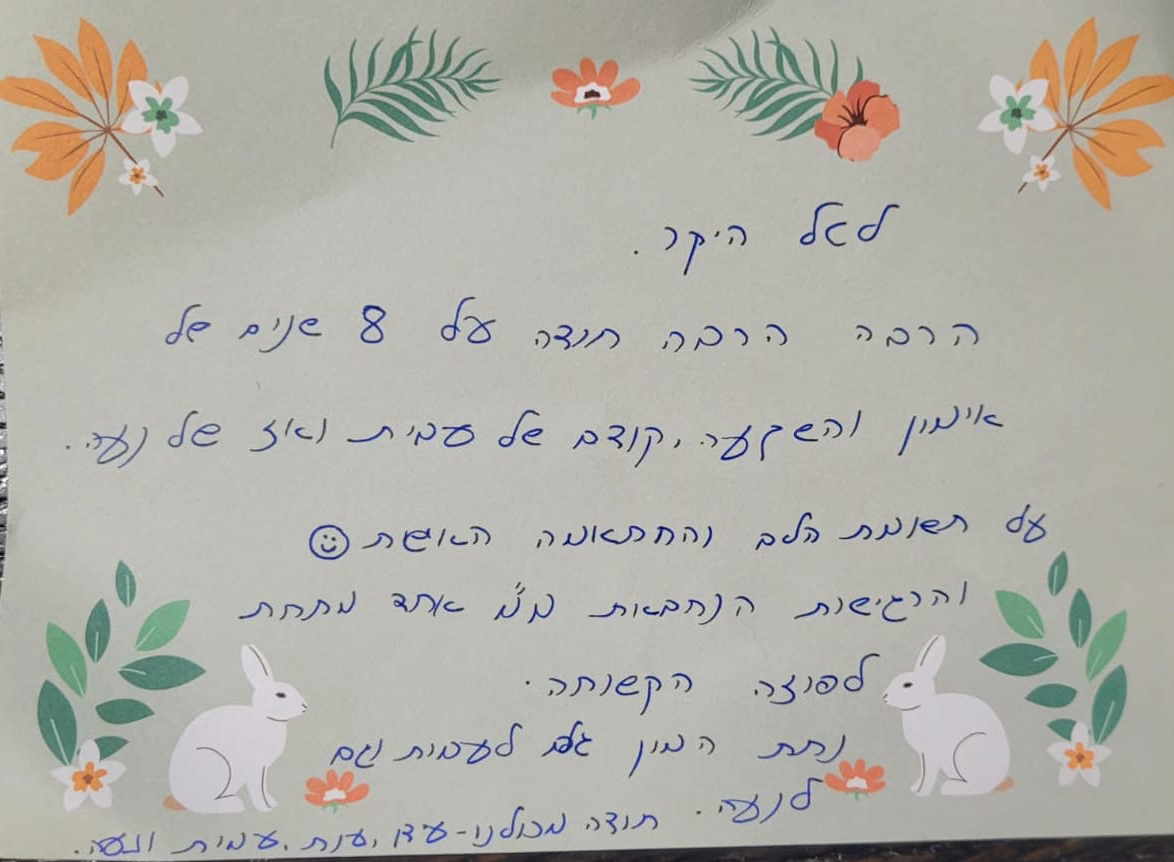 לטל היקר.
הרבה הרבה תודה על 8 שנים של
אימון והשקעה, קודם של עמית ואז של נעה.
על תשומת הלב וההתאמה האישית
והרגישות הנחבאות מ"מ אחד מתחת
לפוזה הקשוחה.
נתת המון גם לעמית וגם
לנעה. תודה מכולנו - עדן, ענת, עמית ונעה.